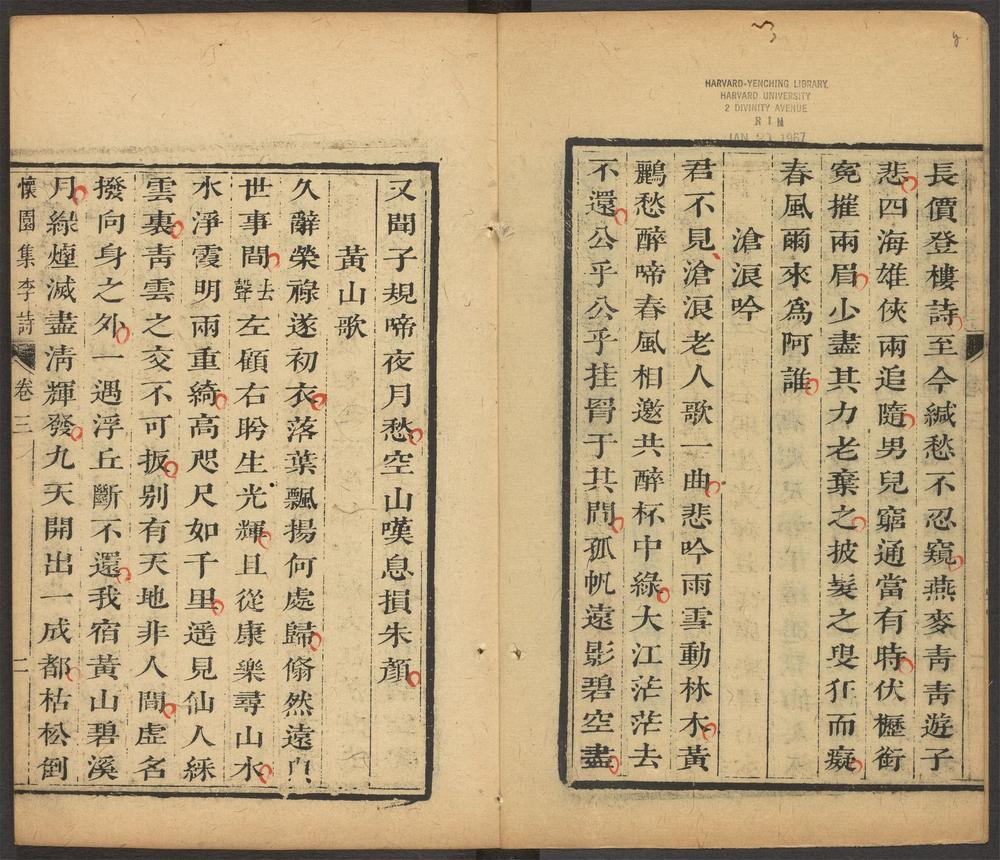 HARVARD-YENCHING LIBRARY
HARVARD UNIVERSITY
2 DIVINITY AVENUE
JAN 23 1967
長價登樓詩至今緘愁不忍窺燕麥靑靑遊子
悲四海雄俠兩追隨男兒窮通當有時伏櫪銜
冤摧兩眉少盡其力老棄之披髮之叟狂而癡
春風爾來爲阿誰
滄浪吟
君不見滄浪老人歌一曲悲吟雨雪動林木黃
鸝愁醉啼春風相邀共醉杯中綠大江茫茫去
不還公乎公乎挂罥于其間孤帆遠影碧空盡
又聞子規啼夜月愁空山嘆息損朱顏
黃山歌
久辭榮祿遂初衣落葉飄揚何處歸翛然遠與
世事間去聲左顧右眄生光輝且從康樂尋山水
水淨霞明兩重綺高咫尺如千里遥見仙人綵
雲裏靑雲之交不可扳別有天地非人間虛名
撥向身之外一遇浮丘斷不還我宿黃山碧溪
月綠煙滅盡淸輝發九天開出一成都枯松倒
懷園集李詩 卷三 二